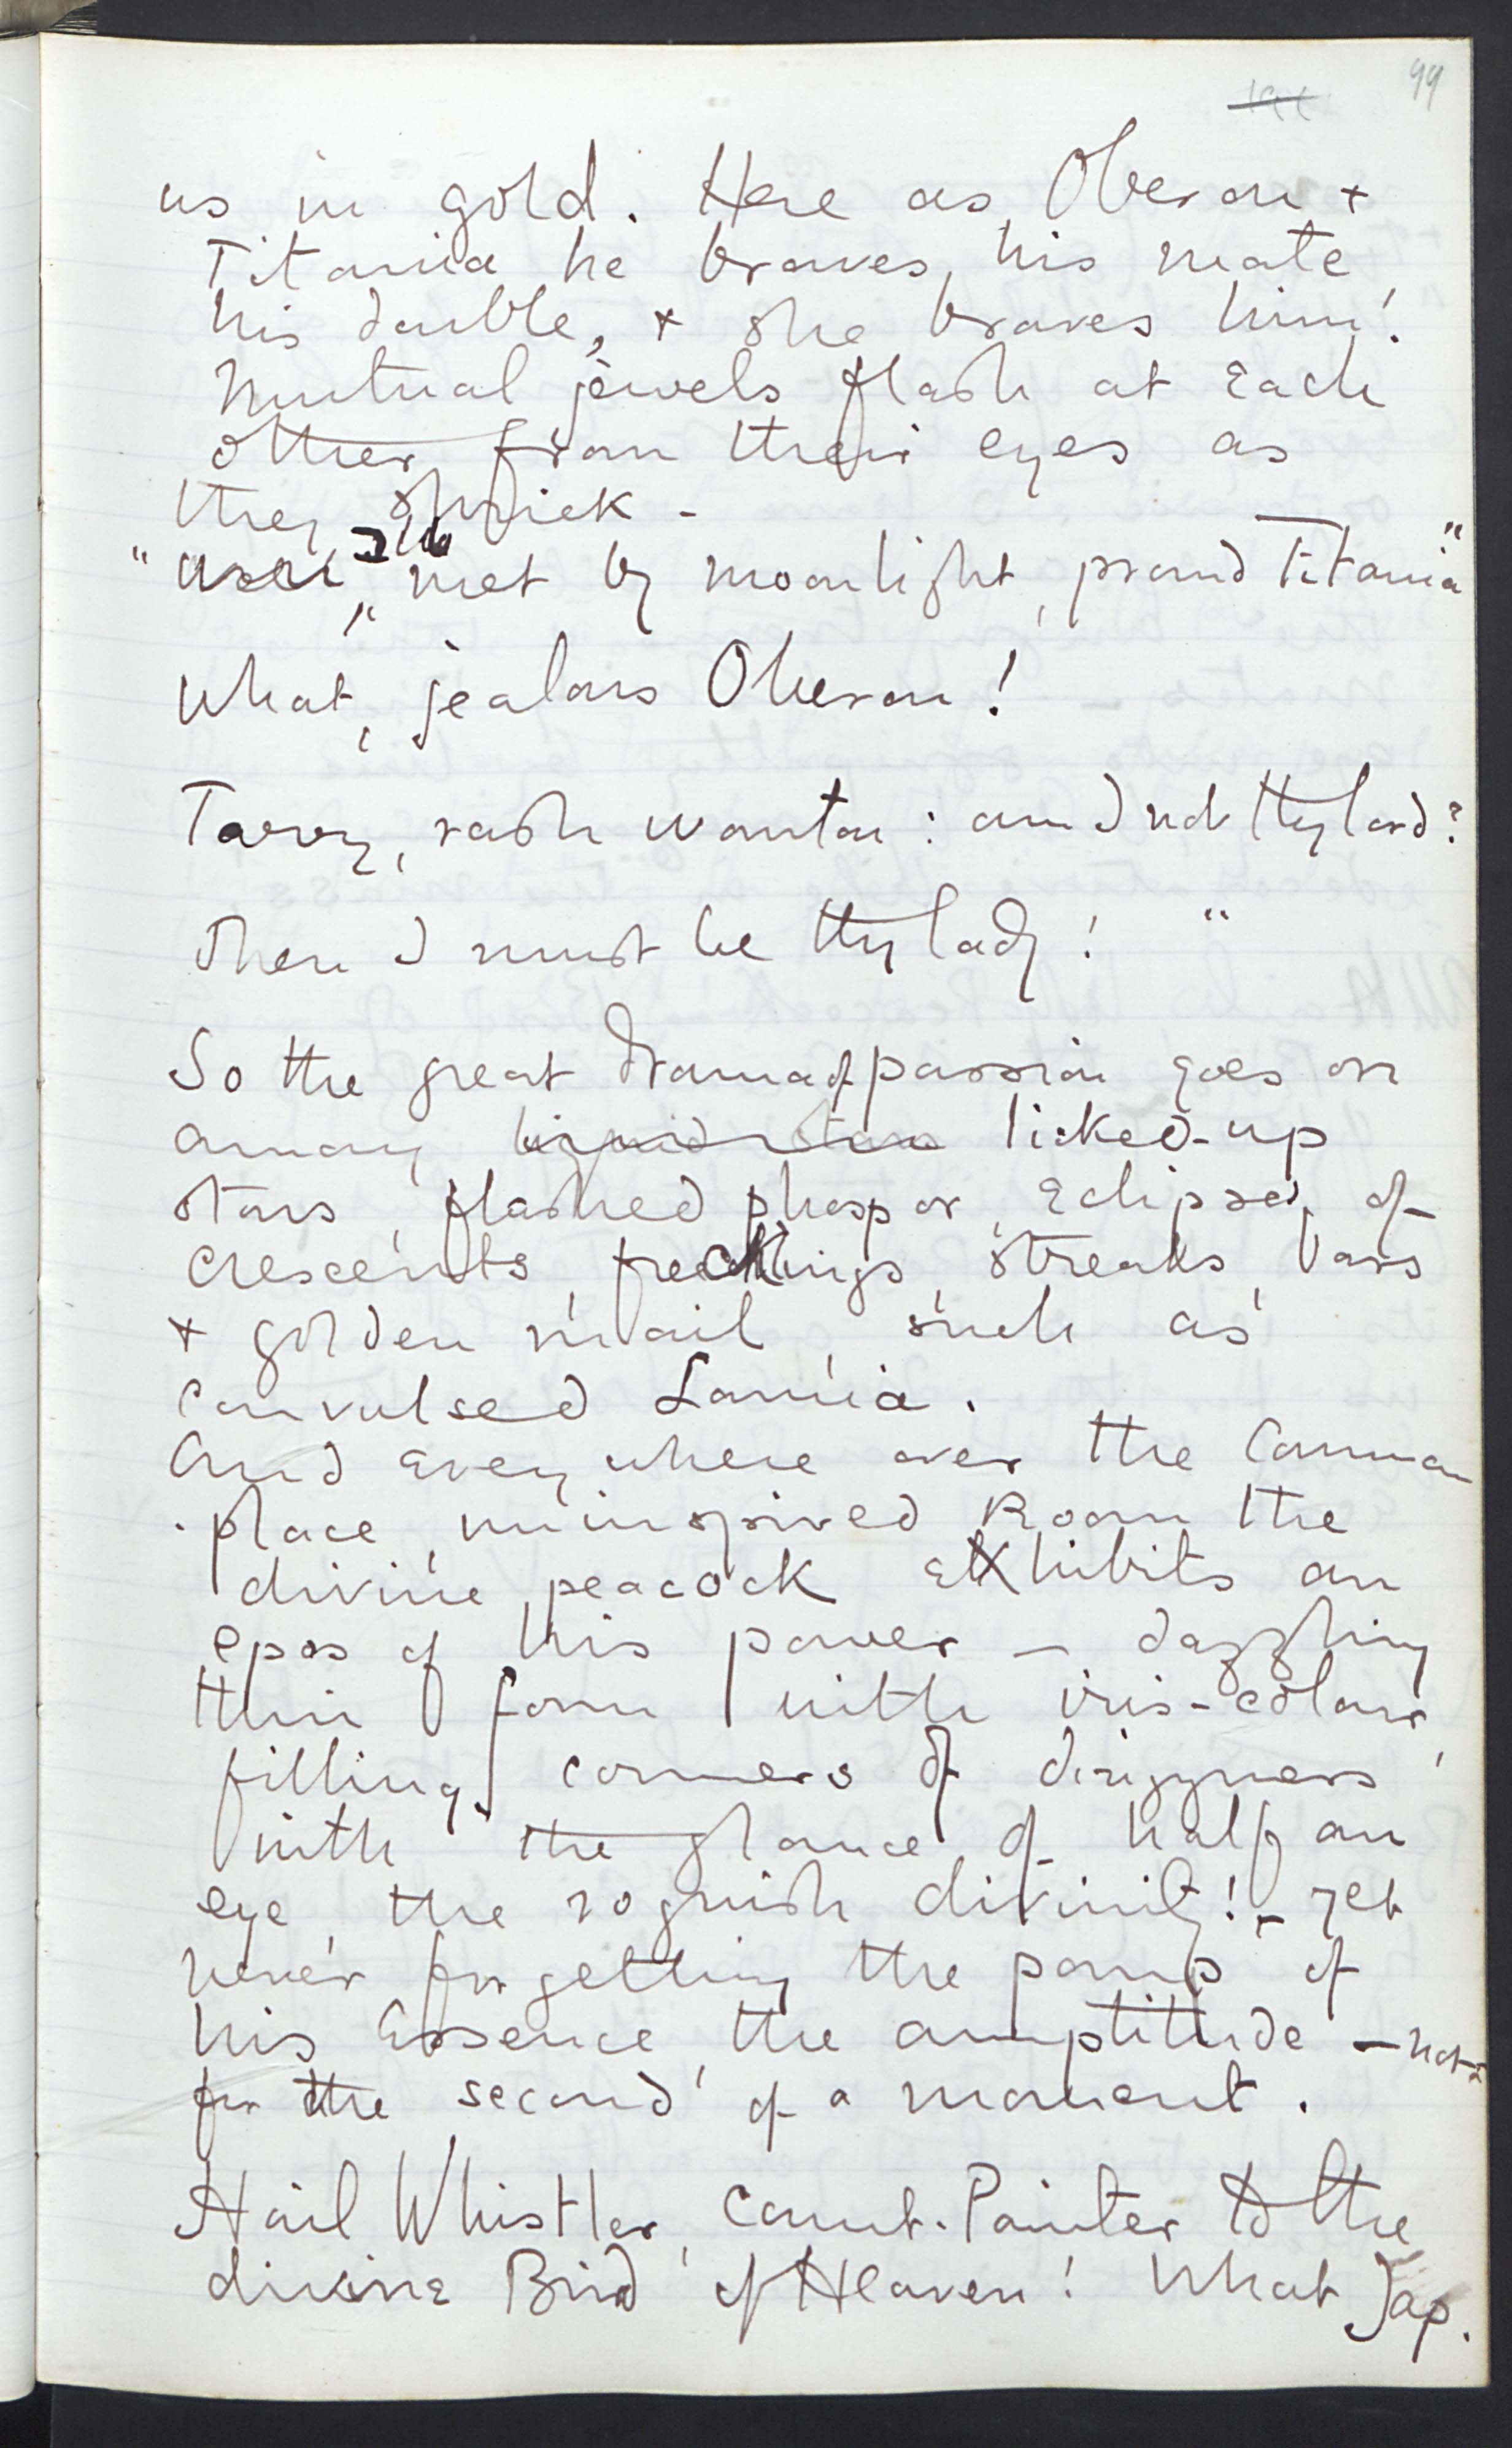 99
us in gold. Here as Oberon +
Titania he braves, his mate,
his double, + she braves him!
Mutual jewels flash at each
other from their eyes as
they shriek -
"Ill met by moonlight, proud Titania"
What, jealous Oberon!
Tarry, rash wanton: am I not thy lord?
Then I must be thy lady! "
So the great drama of passion goes on
among liquid stars licked-up
stars, flashed phospor, eclipses of
crescents, freckings, streaks, bars
+ golden mail, such as
convulsed Lamia.
And everywhere over the Common
-place, uninspired Room the
divine peacock exhibits an
epos of his power - dazzling
thin form with iris-colour,
filling corners of dinginess
with the glance of half an
eye, the roguish divinity! - yet
never forgetting the pomp of
his Essence, the amptitude - not
for the second of a moment.
Hail Whistler, Court-Painter to the
divine Bird of Heaven! What Jap.